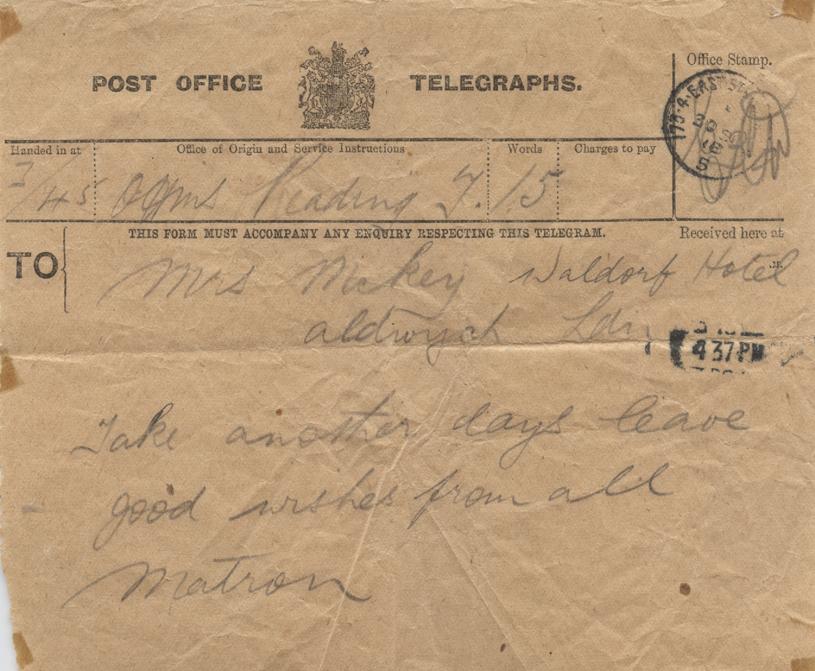 POST OFFICE TELEGRAPHS.
Office Stamp.
Handed in at
Office of Origin and Service Instructions
Words
Charges to pay
3/45
Reading
15
THIS FORM MUST ACCOMPANY ANY ENQUIRY RESPECTING THIS TELEGRAM.
Received here at
TO
Mrs McKey Waldorf Hotel
aldwych Ldn
4 37 PM
Take another days leave
good wishes from all
Matron